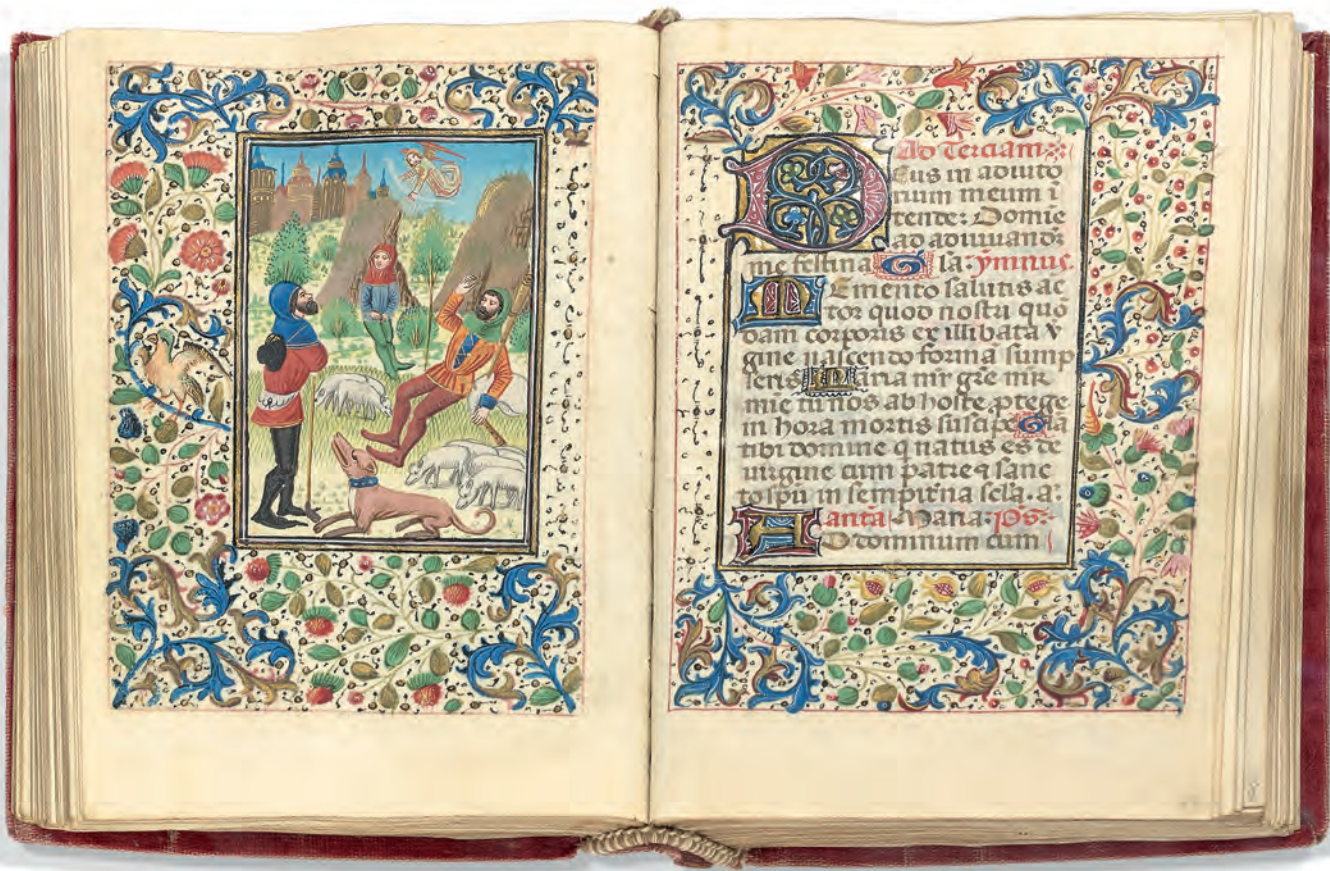 Ad Terciam:
Deus in adiuto
rium meum ī
tende: Domīe
ad adiuuandȝ
me festina Gla: ymnus.
Memento salutis ac
tor quod nostri quō
dam corporis ex illibata v̄
gine nascendo formā sump
seris Maria mr̄ grē mr̄
mīe tu nos ab hoste ꝓtege
in hora mortis suscipe Gla
tibi domine q natus es de
uirgine cum patre ⁊ sanc
to spū in sempitna scla. a:
antā Maria: ps̄:
AD dominum cum